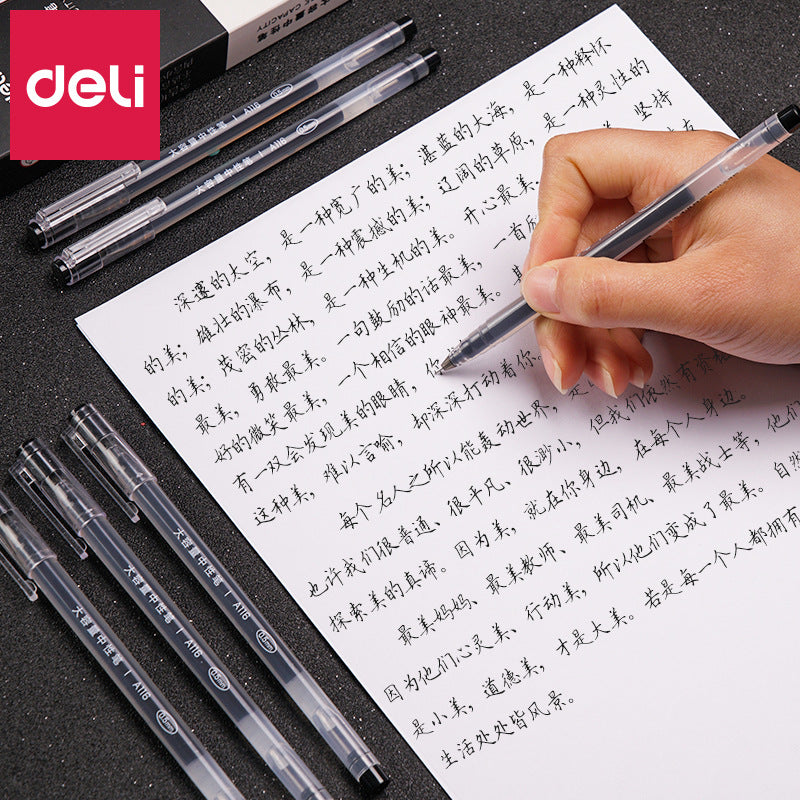 deli
大容量中性笔
CAPACITY
大容量中性笔 | A116 0.5mm
大容量中性笔 | A116 0.5mm
深邃的太空，是一种宽广的美；湛蓝的大海，是一种释怀
的美；雄壮的瀑布，是一种震撼的美；辽阔的草原，是一种灵性的
的美；茂密的丛林，是一种生机的美。开心最美， 坚持
最美，勇敢最美。一句鼓励的话最美，一首
好的微笑最美，一个相信的眼神最美。
有一双会发现美的眼睛，你
这种美，难以言喻，却深深打动着你。
每个名人之所以能轰动世界，
也许我们很普通、很平凡、很渺小，但我们依然有资格
探索美的真谛。因为美，就在你身边，在每个人身边。
最美妈妈、最美教师、最美司机、最美战士等，他们
因为他们心灵美、行动美，所以他们变成了最美。自然
是小美，道德美，才是大美。若是每一个人都拥有
生活处处皆风景。
大容量中性笔 | A116 0.5mm
大容量中性笔 | A116 0.5mm
大容量中性笔 | A116 0.5mm